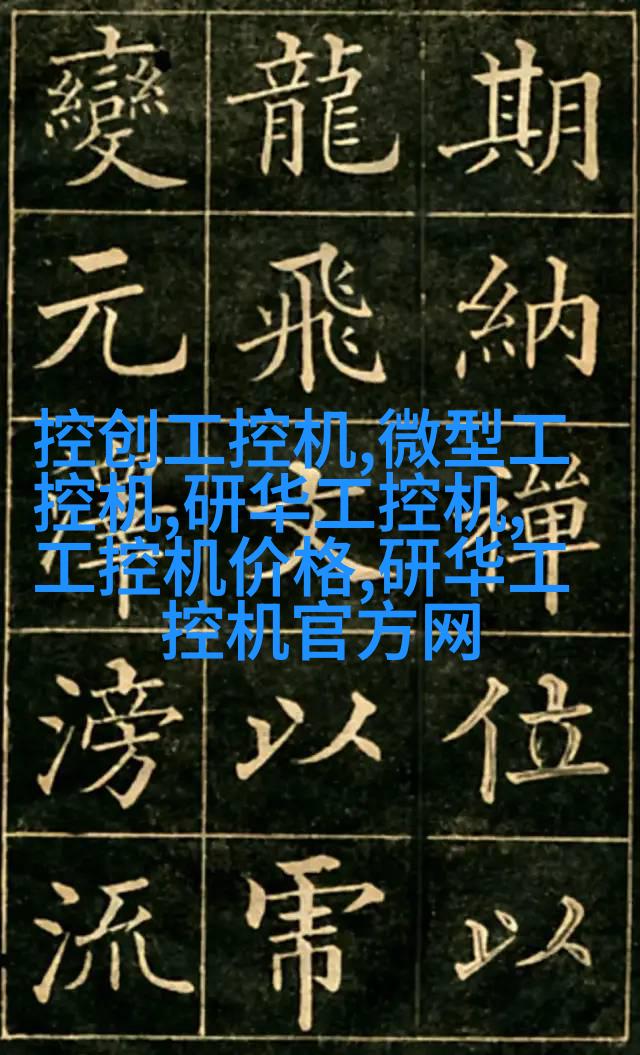 控创工控机,微型工
控机,研华工控机,
工控机价格,研华工
控机官方网
期納禪位以
龍飛以
變元澤滂流